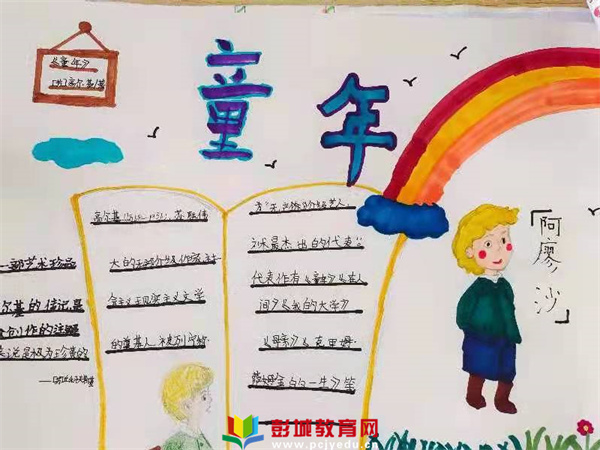 《童年》
童年
高尔基(1868-1936),苏联伟
大的无产阶级作家,社
会主义现实主义文学
的奠基人,被列宁称
为"无产阶级艺术
最杰出的代表"。
代表作有《童年》《在人
间》《我的大学》
《母亲》《克里姆·
萨姆金的一生》等
一部艺术珍品
尔基的传记是
「阿廖沙」
彭城教育网
www.pcjyedu.cn